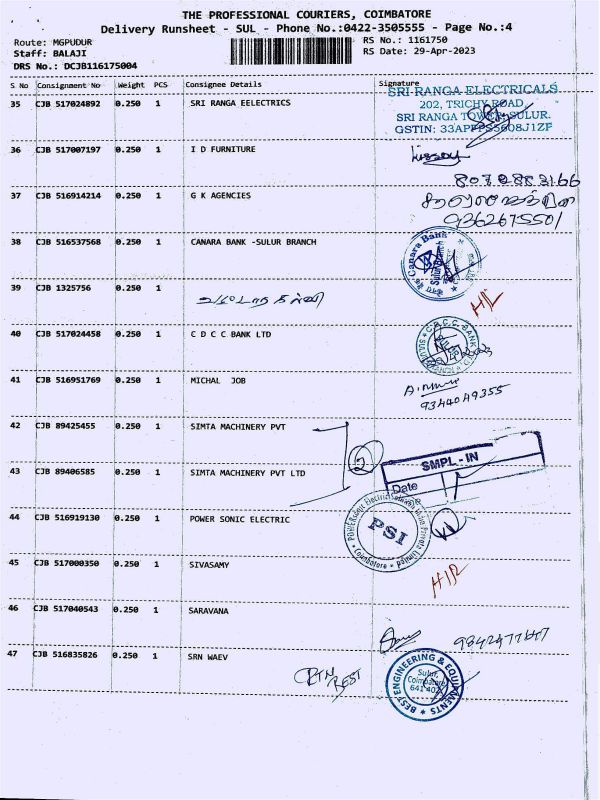 THE PROFESSIONAL COURIERS, COIMBATORE
Delivery Runsheet - SUL - Phone No.:0422-3505555 - Page No.:4
Route: MGPUDUR
RS No.: 1161750
Staff: BALAJI
RS Date: 29-Apr-2023
DRS No.: DCJB116175004
S No Consignment No Weight PCS Consignee Details Signature
35 CJB 517024892 0.250 1 SRI RANGA EELECTRICS
SRI RANGA ELECTRICALS
202, TRICHY ROAD,
SRI RANGA TOWER, SULUR.
36 CJB 517007197 0.250 1 I D FURNITURE
37 CJB 516914214 0.250 1 G K AGENCIES
8072883166
9362675501
38 CJB 516537568 0.250 1 CANARA BANK -SULUR BRANCH
Canara Bank
39 CJB 1325756 0.250 1
H/L
40 CJB 517024458 0.250 1 C D C C BANK LTD
41 CJB 516951769 0.250 1 MICHAL JOB
9344049355
42 CJB 89425455 0.250 1 SIMTA MACHINERY PVT
43 CJB 89406585 0.250 1 SIMTA MACHINERY PVT LTD
SMPL - IN
Date
44 CJB 516919130 0.250 1 POWER SONIC ELECTRIC
PSI
Coimbatore
45 CJB 517000350 0.250 1 SIVASAMY
46 CJB 517040543 0.250 1 SARAVANA
47 CJB 516835826 0.250 1 SRN WAEV
BEST
BEST ENGINEERING & EQUIPMENTS
Sulur,
Coimbatore
641 402